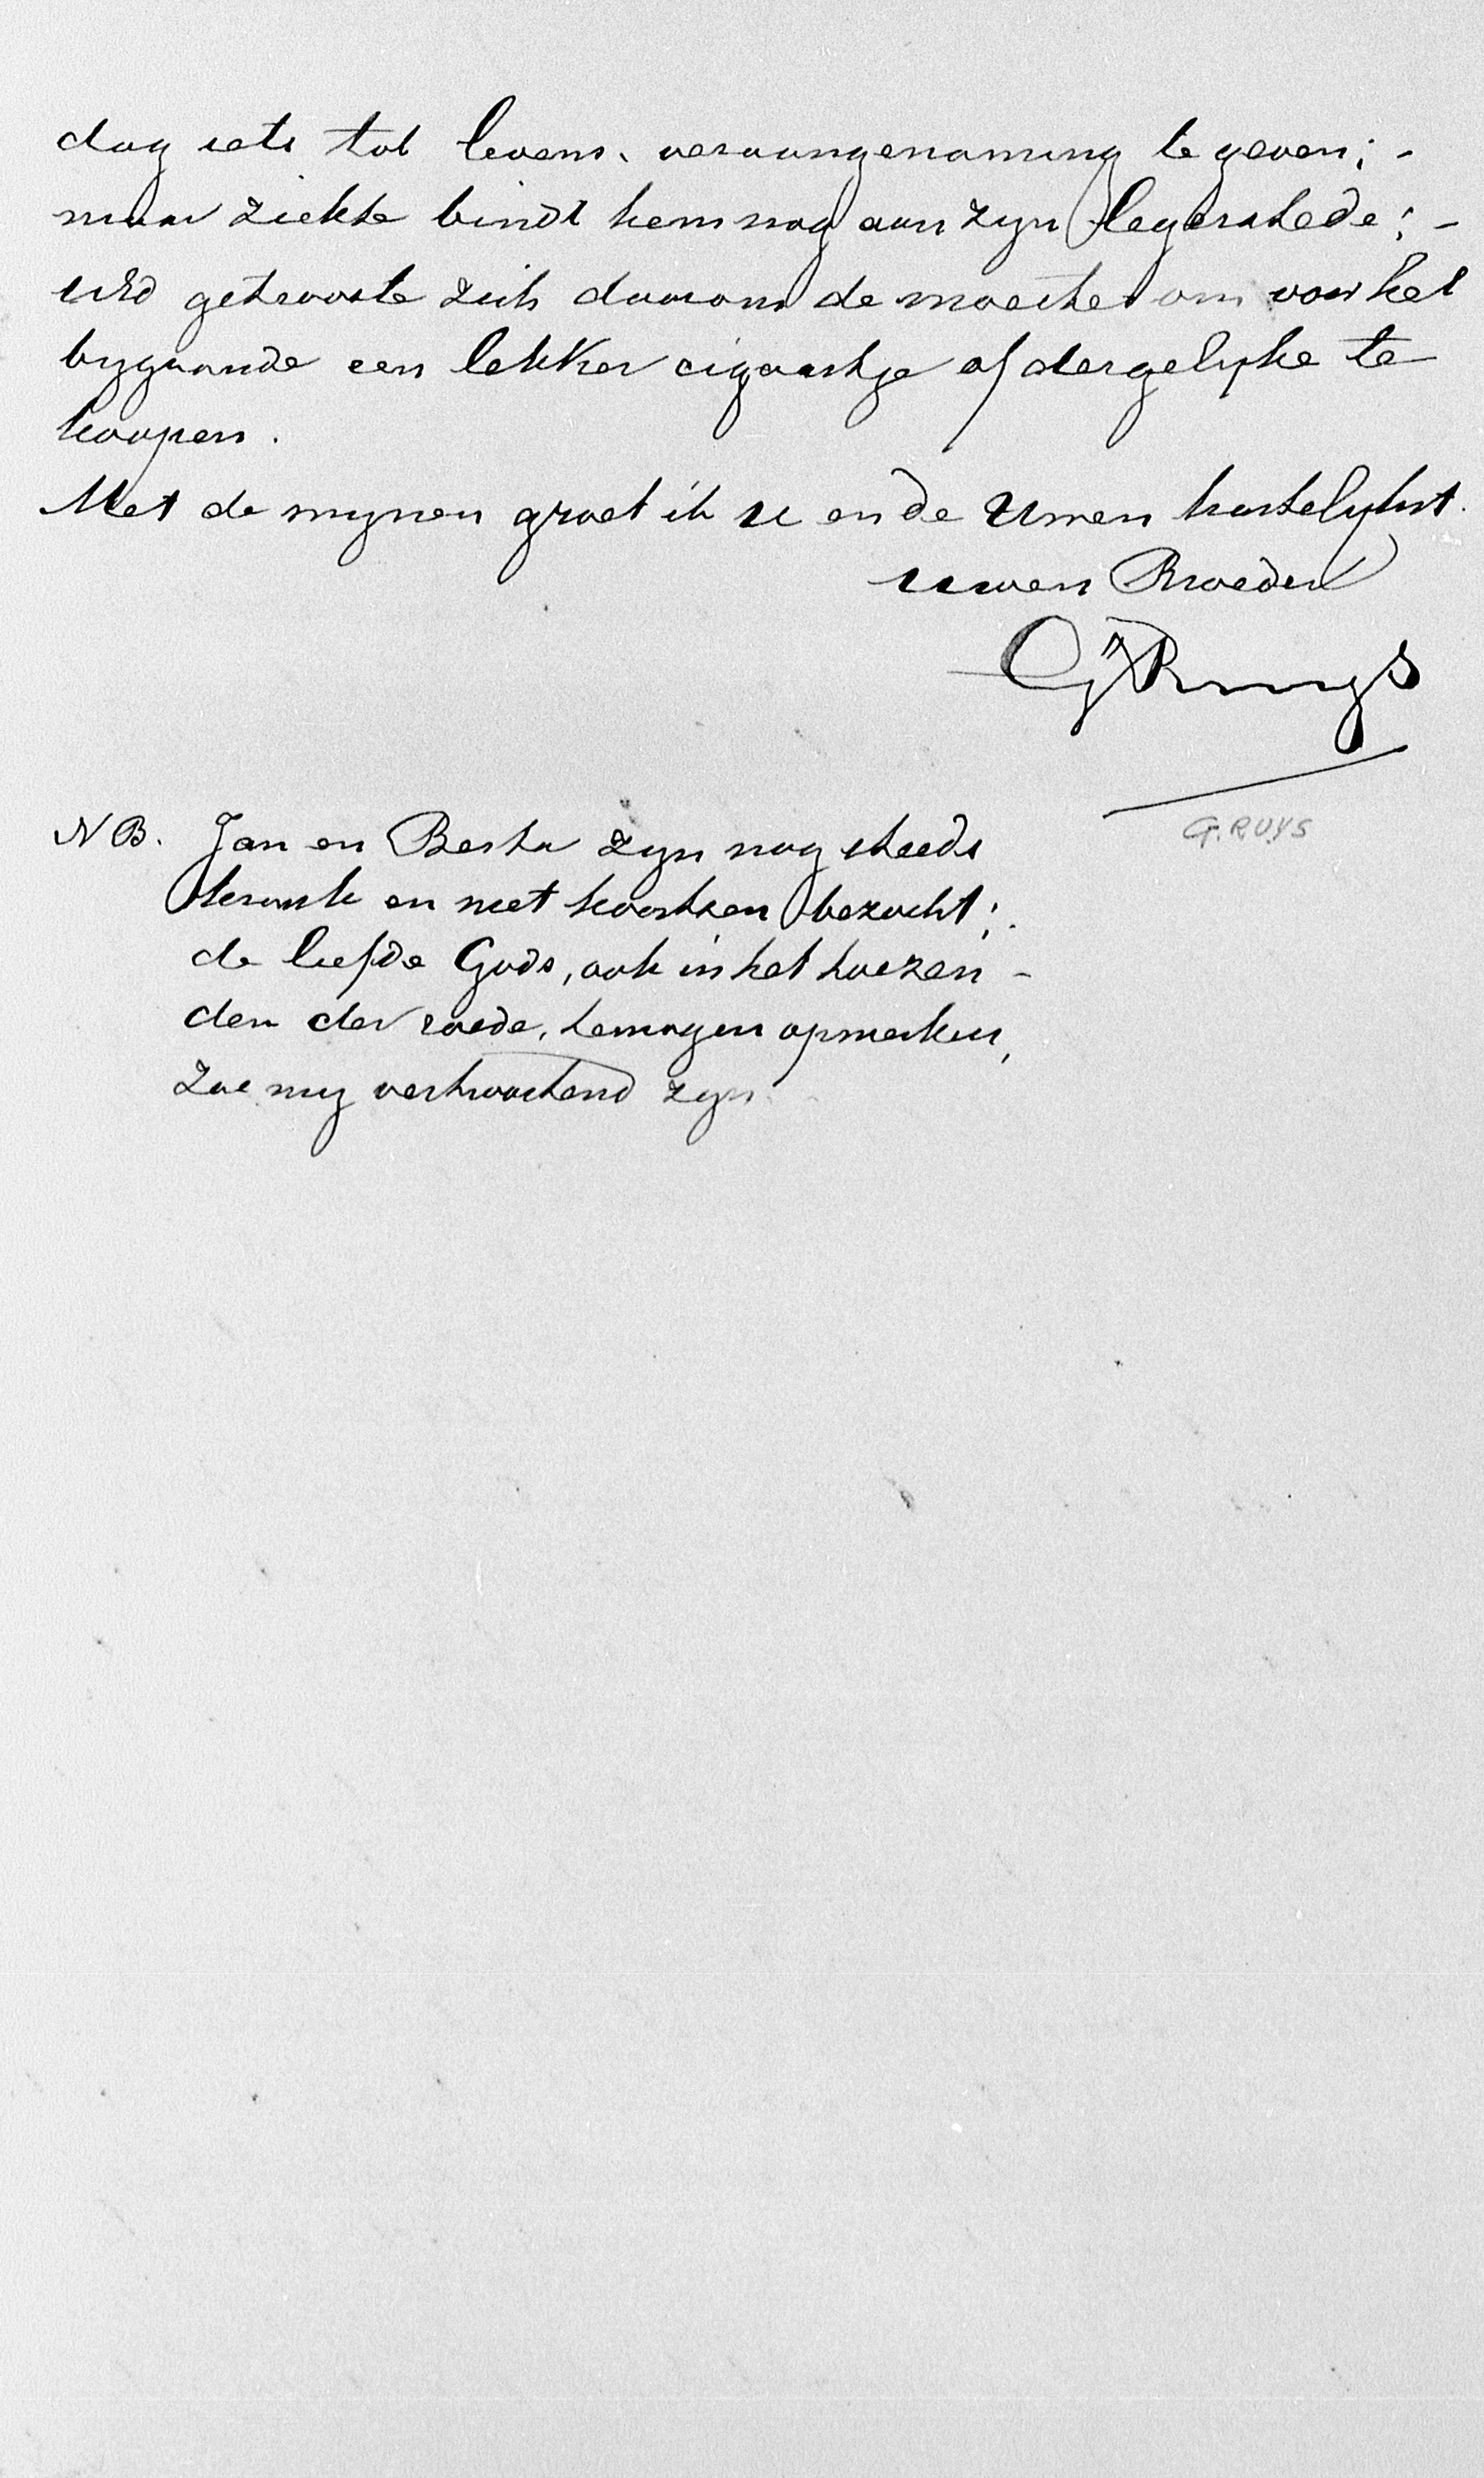 dag iets tot levens-veraangenaming te geven; -
maar ziekte bindt hem nog aan zyn legerstede; -
UEd getrooste zich daarom de moeite om voor het
bygaande een lekker cigaartje of dergelyke te
koopen.
Met de mynen groet ik u en de Uwen hartelykst.
uwen Broeder
G Ruys
G. RUYS
NB. Jan en Berta zyn nog steeds
krank en met koortsen bezocht;
de liefde Gods, ook in het toezen-
den der roede, te mogen opmerken,
zoe my vertroostend zyn